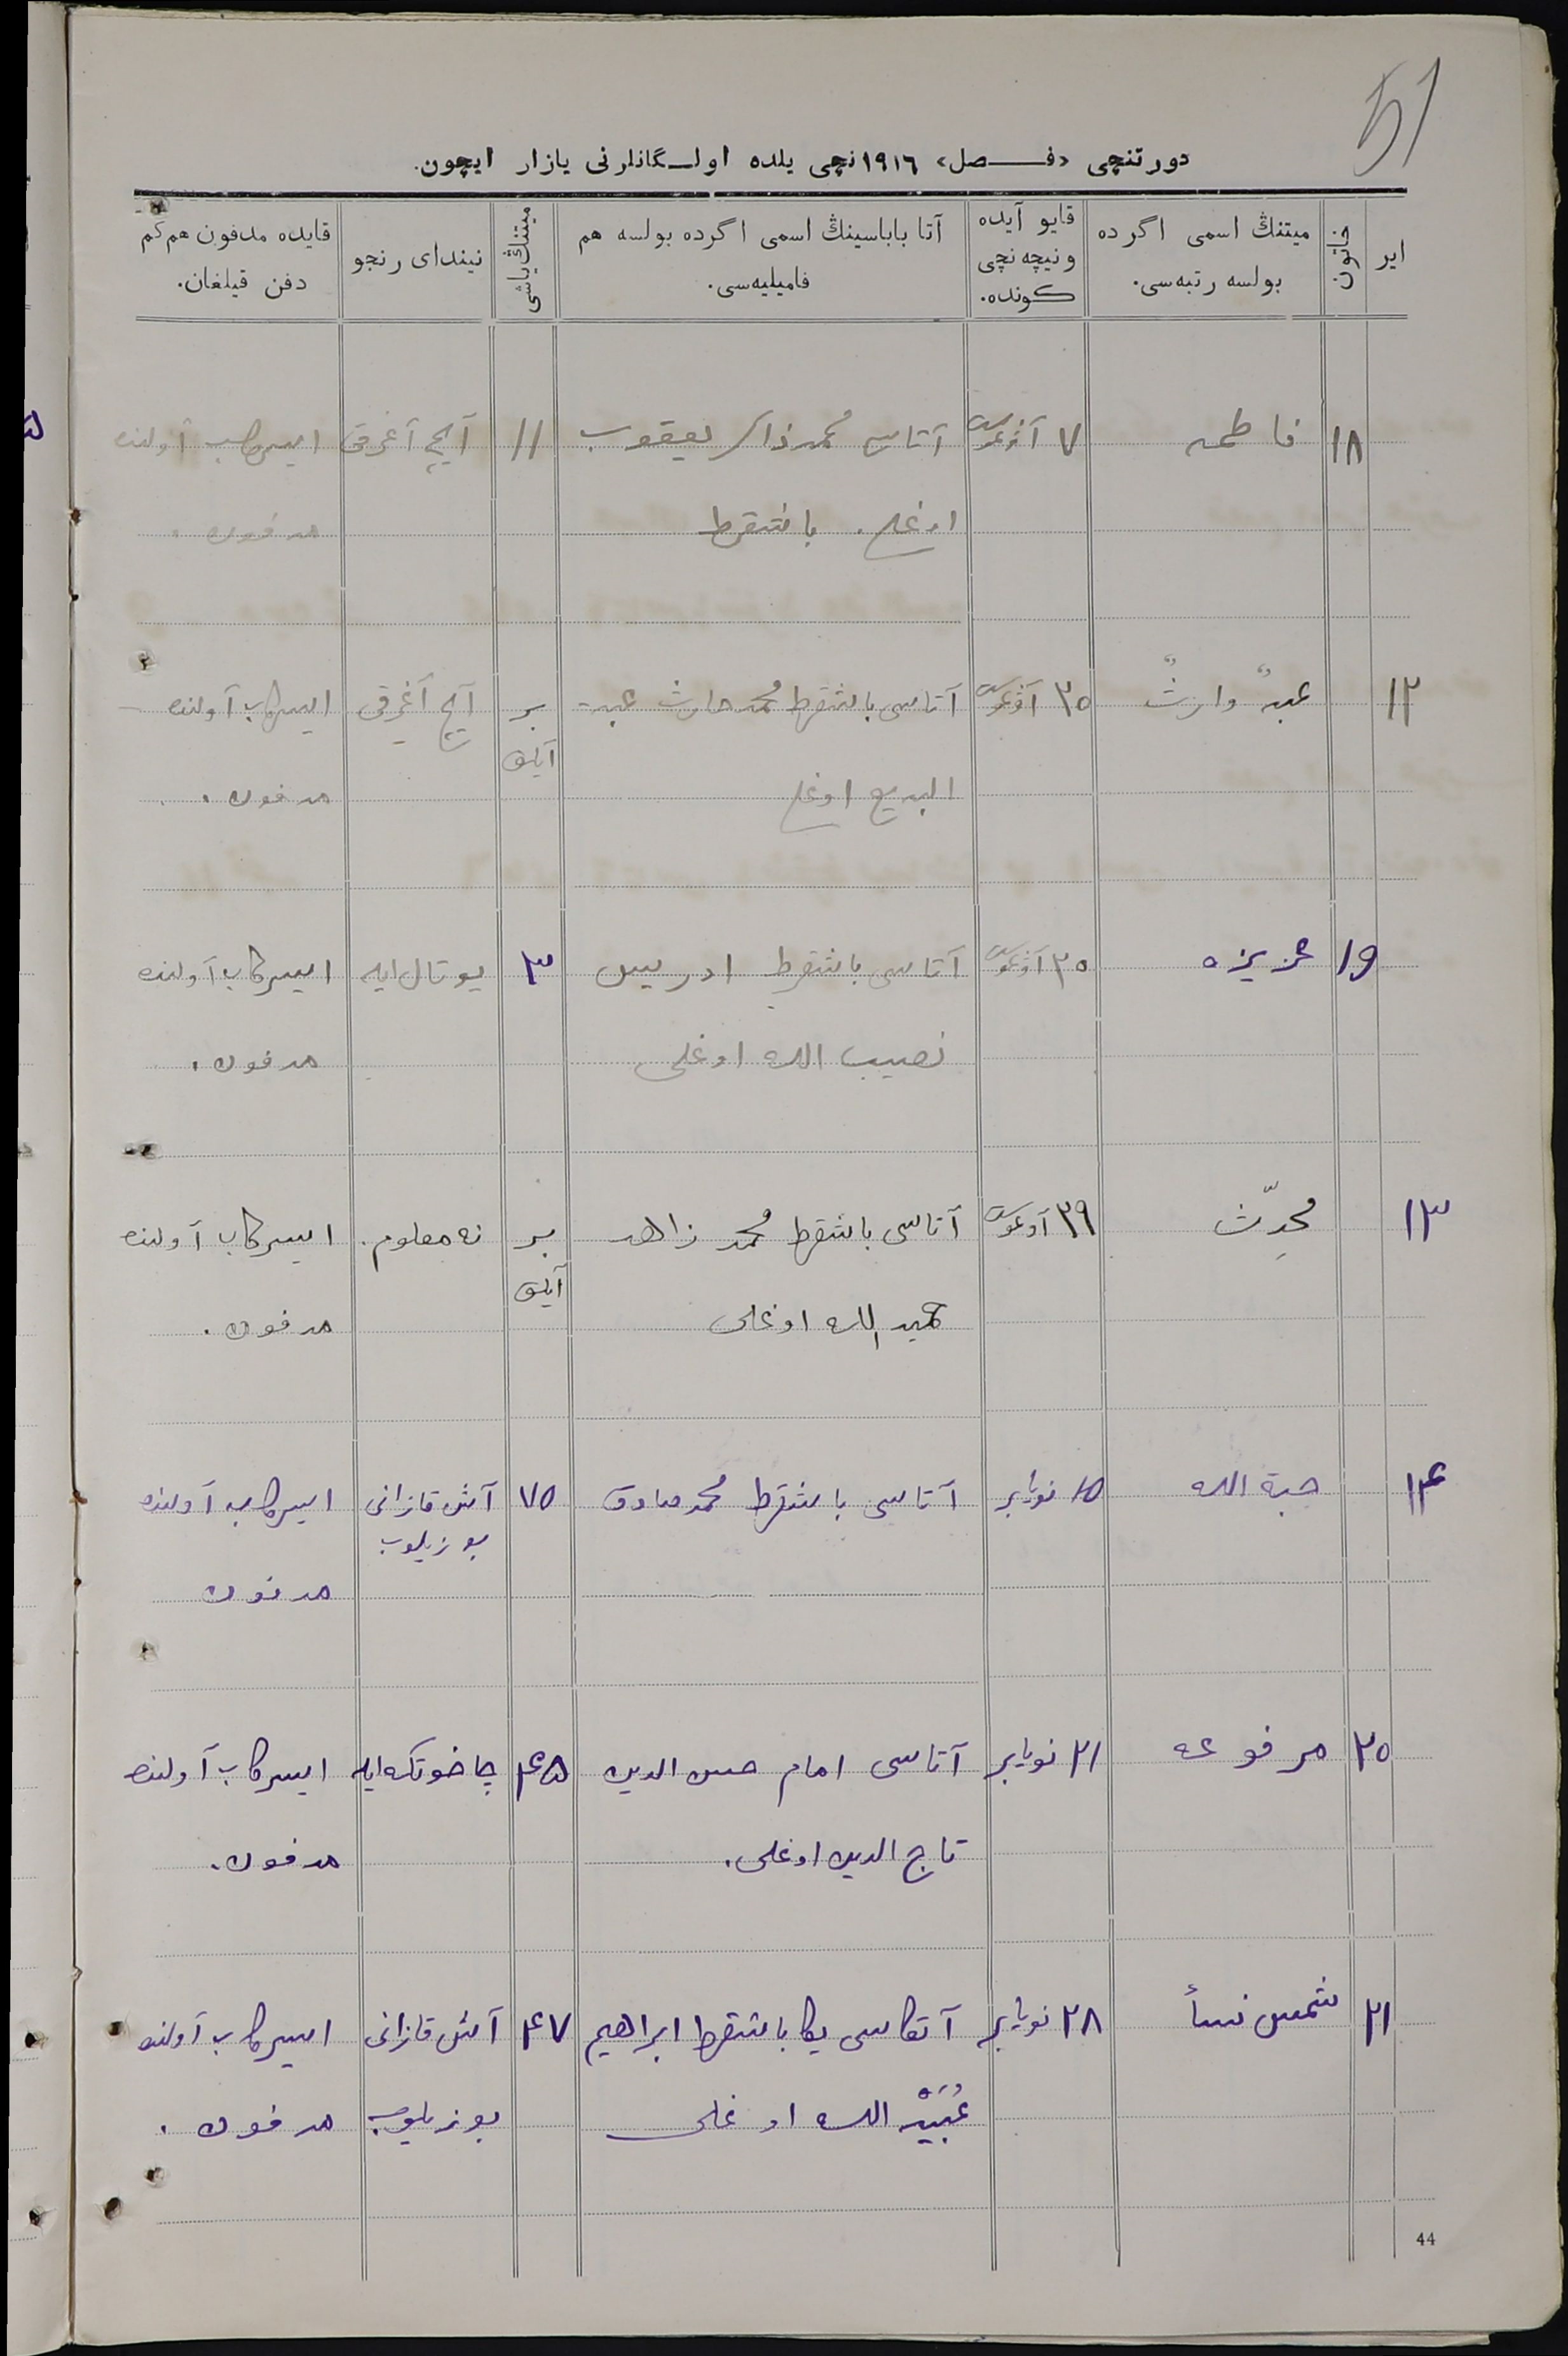 51
دورتنچی «فـصل» ۱۹۱۶ نچی یلده اولـگانلرنی یازار ایچون.
ایر
خاتون
میتنڭ اسمی اگرده
بولسه رتبه‌سی.
قایو آیده
و نیچه نچی
کونده.
آتا باباسینڭ اسمی اگرده بولسه هم
فامیلیه‌سی.
میتنڭ یاشی
نیندای رنجو
قایده مدفون هم کم
دفن قیلغان.
۱۸ فاطمه ۷ آوغوست آتاسی محمد ذاکر یعقوب ۱۱ آیچ آغرقی ایسرکاب آولنده
اوغلی. باشقرط مدفون.
۱۲ عبد وارث ۲۵ آوغوست آتاسی باشقرط محمد حارث عبد بر آیچ آغرقی ایسرکاب آولنده
آیلق
البدیع اوغلی مدفون.
۱۹ عزیزه ۲۵ آوغوست آتاسی باشقرط ادریس ۳ یوتال ایله ایسرکاب آولنده
نصیب الله اوغلی مدفون.
۱۳ محدّث ۲۹ آوغوست آتاسی باشقرط محمد زاهد بر نه معلوم. ایسرکاب آولنده
آیلق
حمید الله اوغلی مدفون.
۱۴ حبة الله ۱۵ نویابر آتاسی باشقرط محمد صادق ۷۵ آش قازانی ایسرکاب آولنده
بوزیلوب
مدفون
۲۰ مرفوعه ۲۱ نویابر آتاسی امام حسن الدین ۴۵ چاخوتکه ایله ایسرکاب آولنده
تاج الدین اوغلی. مدفون.
۲۱ شمس نسأ ۲۸ نویابر آتاسی باشقرط ابراهیم ۴۷ آش قازانی ایسرکاب آولنده
عُبَیْد الله اوغلی بوزیلوب مدفون.
44